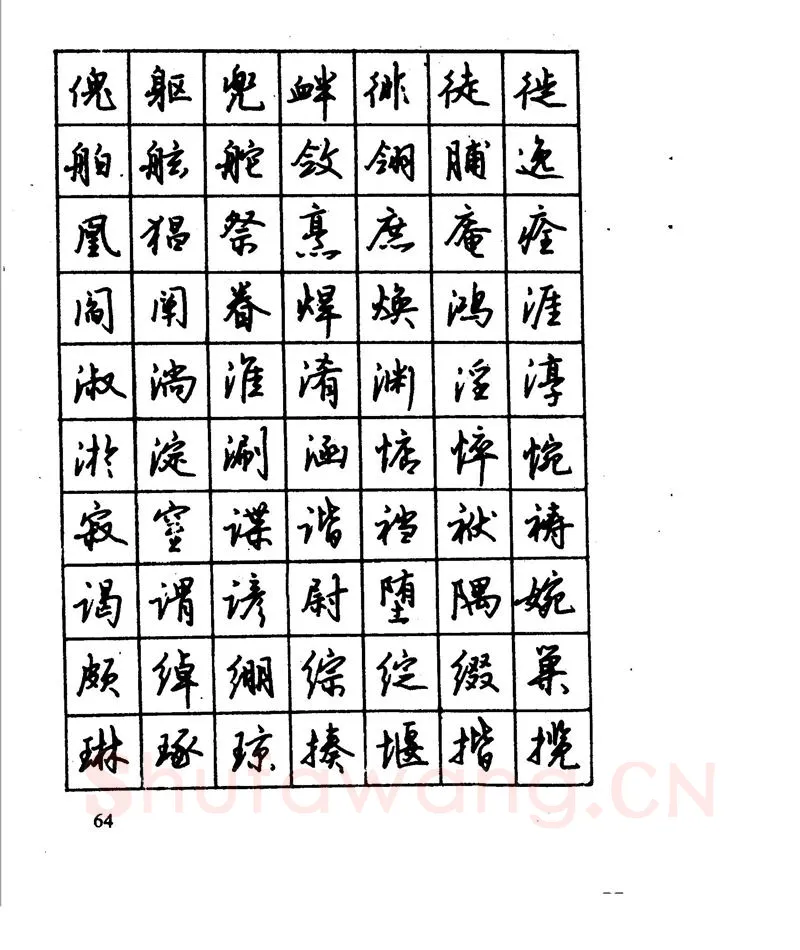 傀躯兜衅徘徒徙
舶舷舵敛翎脯逸
凰猖祭烹庶庵痊
阎阐眷焊焕鸿涯
淑淌淮淆渊淫淳
淤淀涮涵惦悴惋
寂窒谍谐裆袱祷
谒谓谚尉堕隅婉
颇绰绷综绽缀巢
琳琢琼揍堰揩揽
Shufawang.CN
64